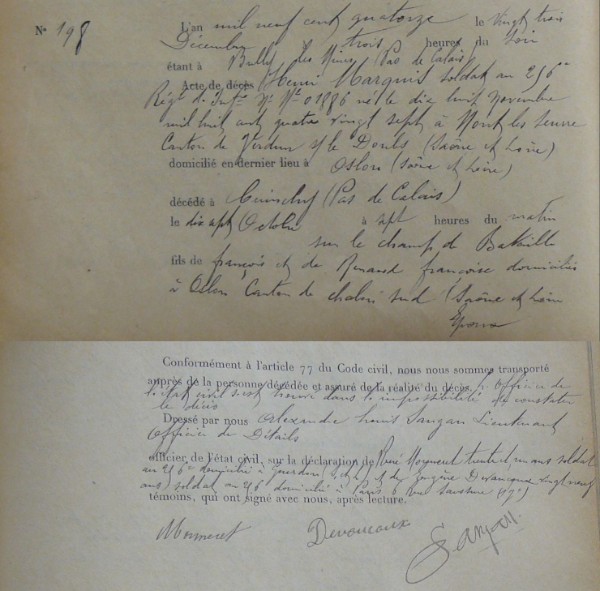 N° 198
L'an mil neuf cent quatorze le vingt trois
Décembre à trois heures du soir
étant à Bully les Mines (Pas de Calais)
Acte de décès Henri Marquis soldat au 256me
Régt d'Infie No Mle 01886 né le dix huit novembre
mil huit cent quatre vingt sept à Mont les Seurre
Canton de Verdun s/ le Doubs (Saône et Loire)
domicilié en dernier lieu à Oslon (Saône et Loire)
décédé à (Pas de Calais)
le dix sept Octobre à sept heures du matin
sur le champ de Bataille
fils de françois et de Renaud françoise domiciliés
à Oslon Canton de chalon sud (Saône et Loire
Époux
Conformément à l'article 77 du Code civil, nous nous sommes transporté
auprès de la personne décédée et assuré de la réalité du décès. l'officier de
l'état civil s'est trouvé dans l'impossibilité de constater
le décès
Dressé par nous Alexandre Louis Lieutenant
Officier de Détails
officier de l'état civil, sur la déclaration de René ans soldat
au 256e domicilié à et de Devoucoux vingt neuf
ans soldat au 256 domicilié à Paris 6 rue
témoins, qui ont signé avec nous, après lecture.
Devoucoux